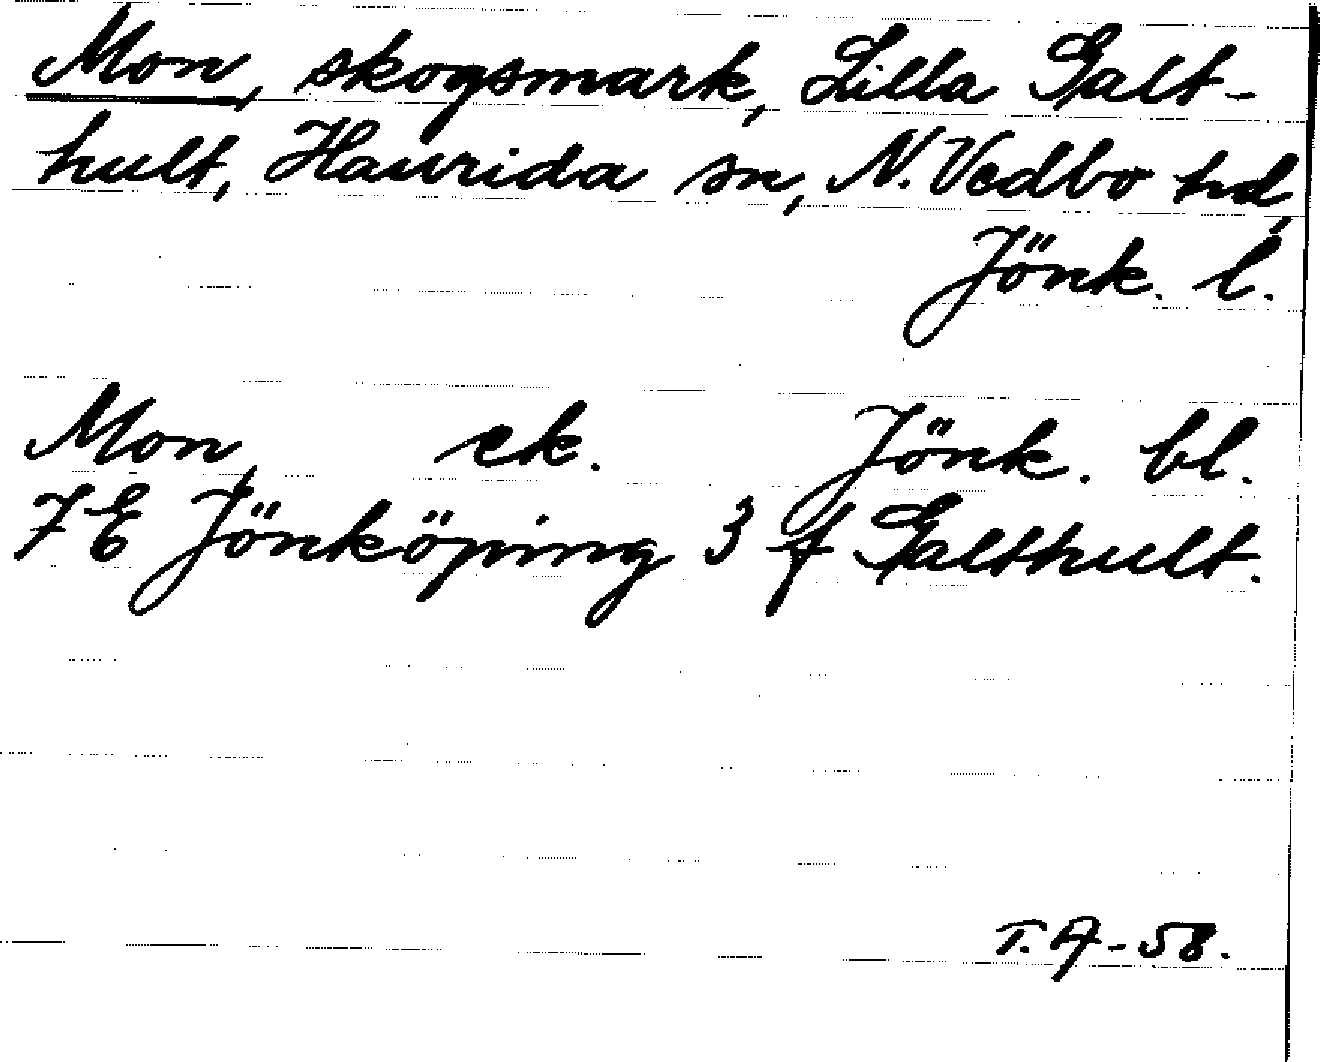 Mon, skogsmark, Lilla Galt-
hult, Haurida sn, N. Vedbo hd,
Jönk. l.
Mon, ek. Jönk. bl.
7E Jönköping 3 f Galthult.
T. A-58.